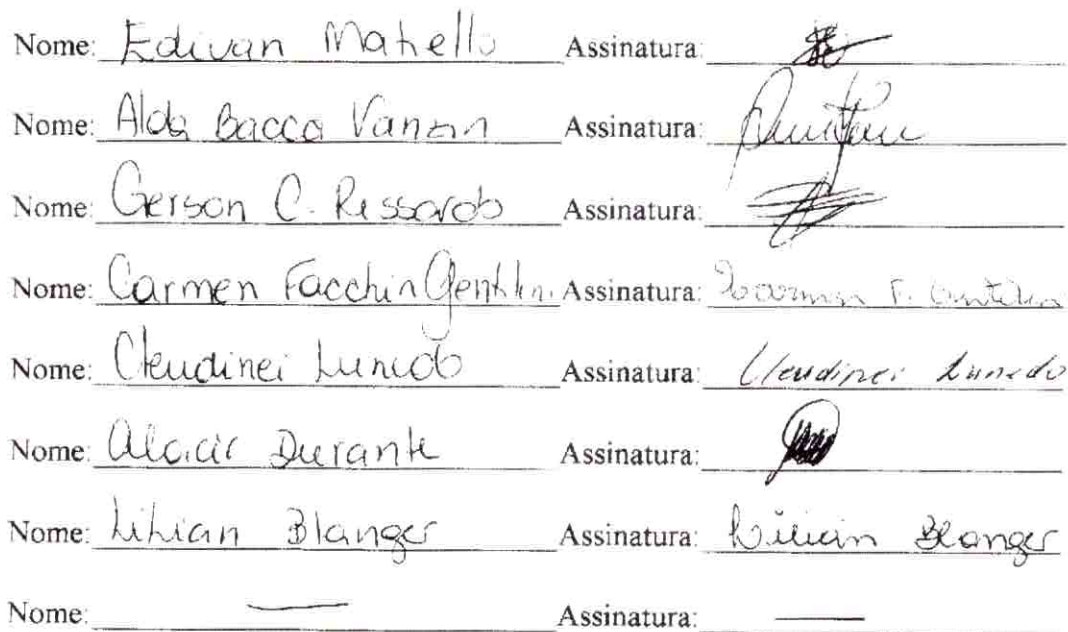 Nome: Edivan Matiello Assinatura:
Nome: Alda Bacca Vanzin Assinatura:
Nome: Gerson C. Ressardo Assinatura:
Nome: Carmen Facchin Gentilin Assinatura: Carmen F. Gentilin
Nome: Cleudinei Lunedo Assinatura: Cleudinei Lunedo
Nome: Alacir Durante Assinatura:
Nome: Lilian Blanger Assinatura: Lilian Blanger
Nome: — Assinatura: —